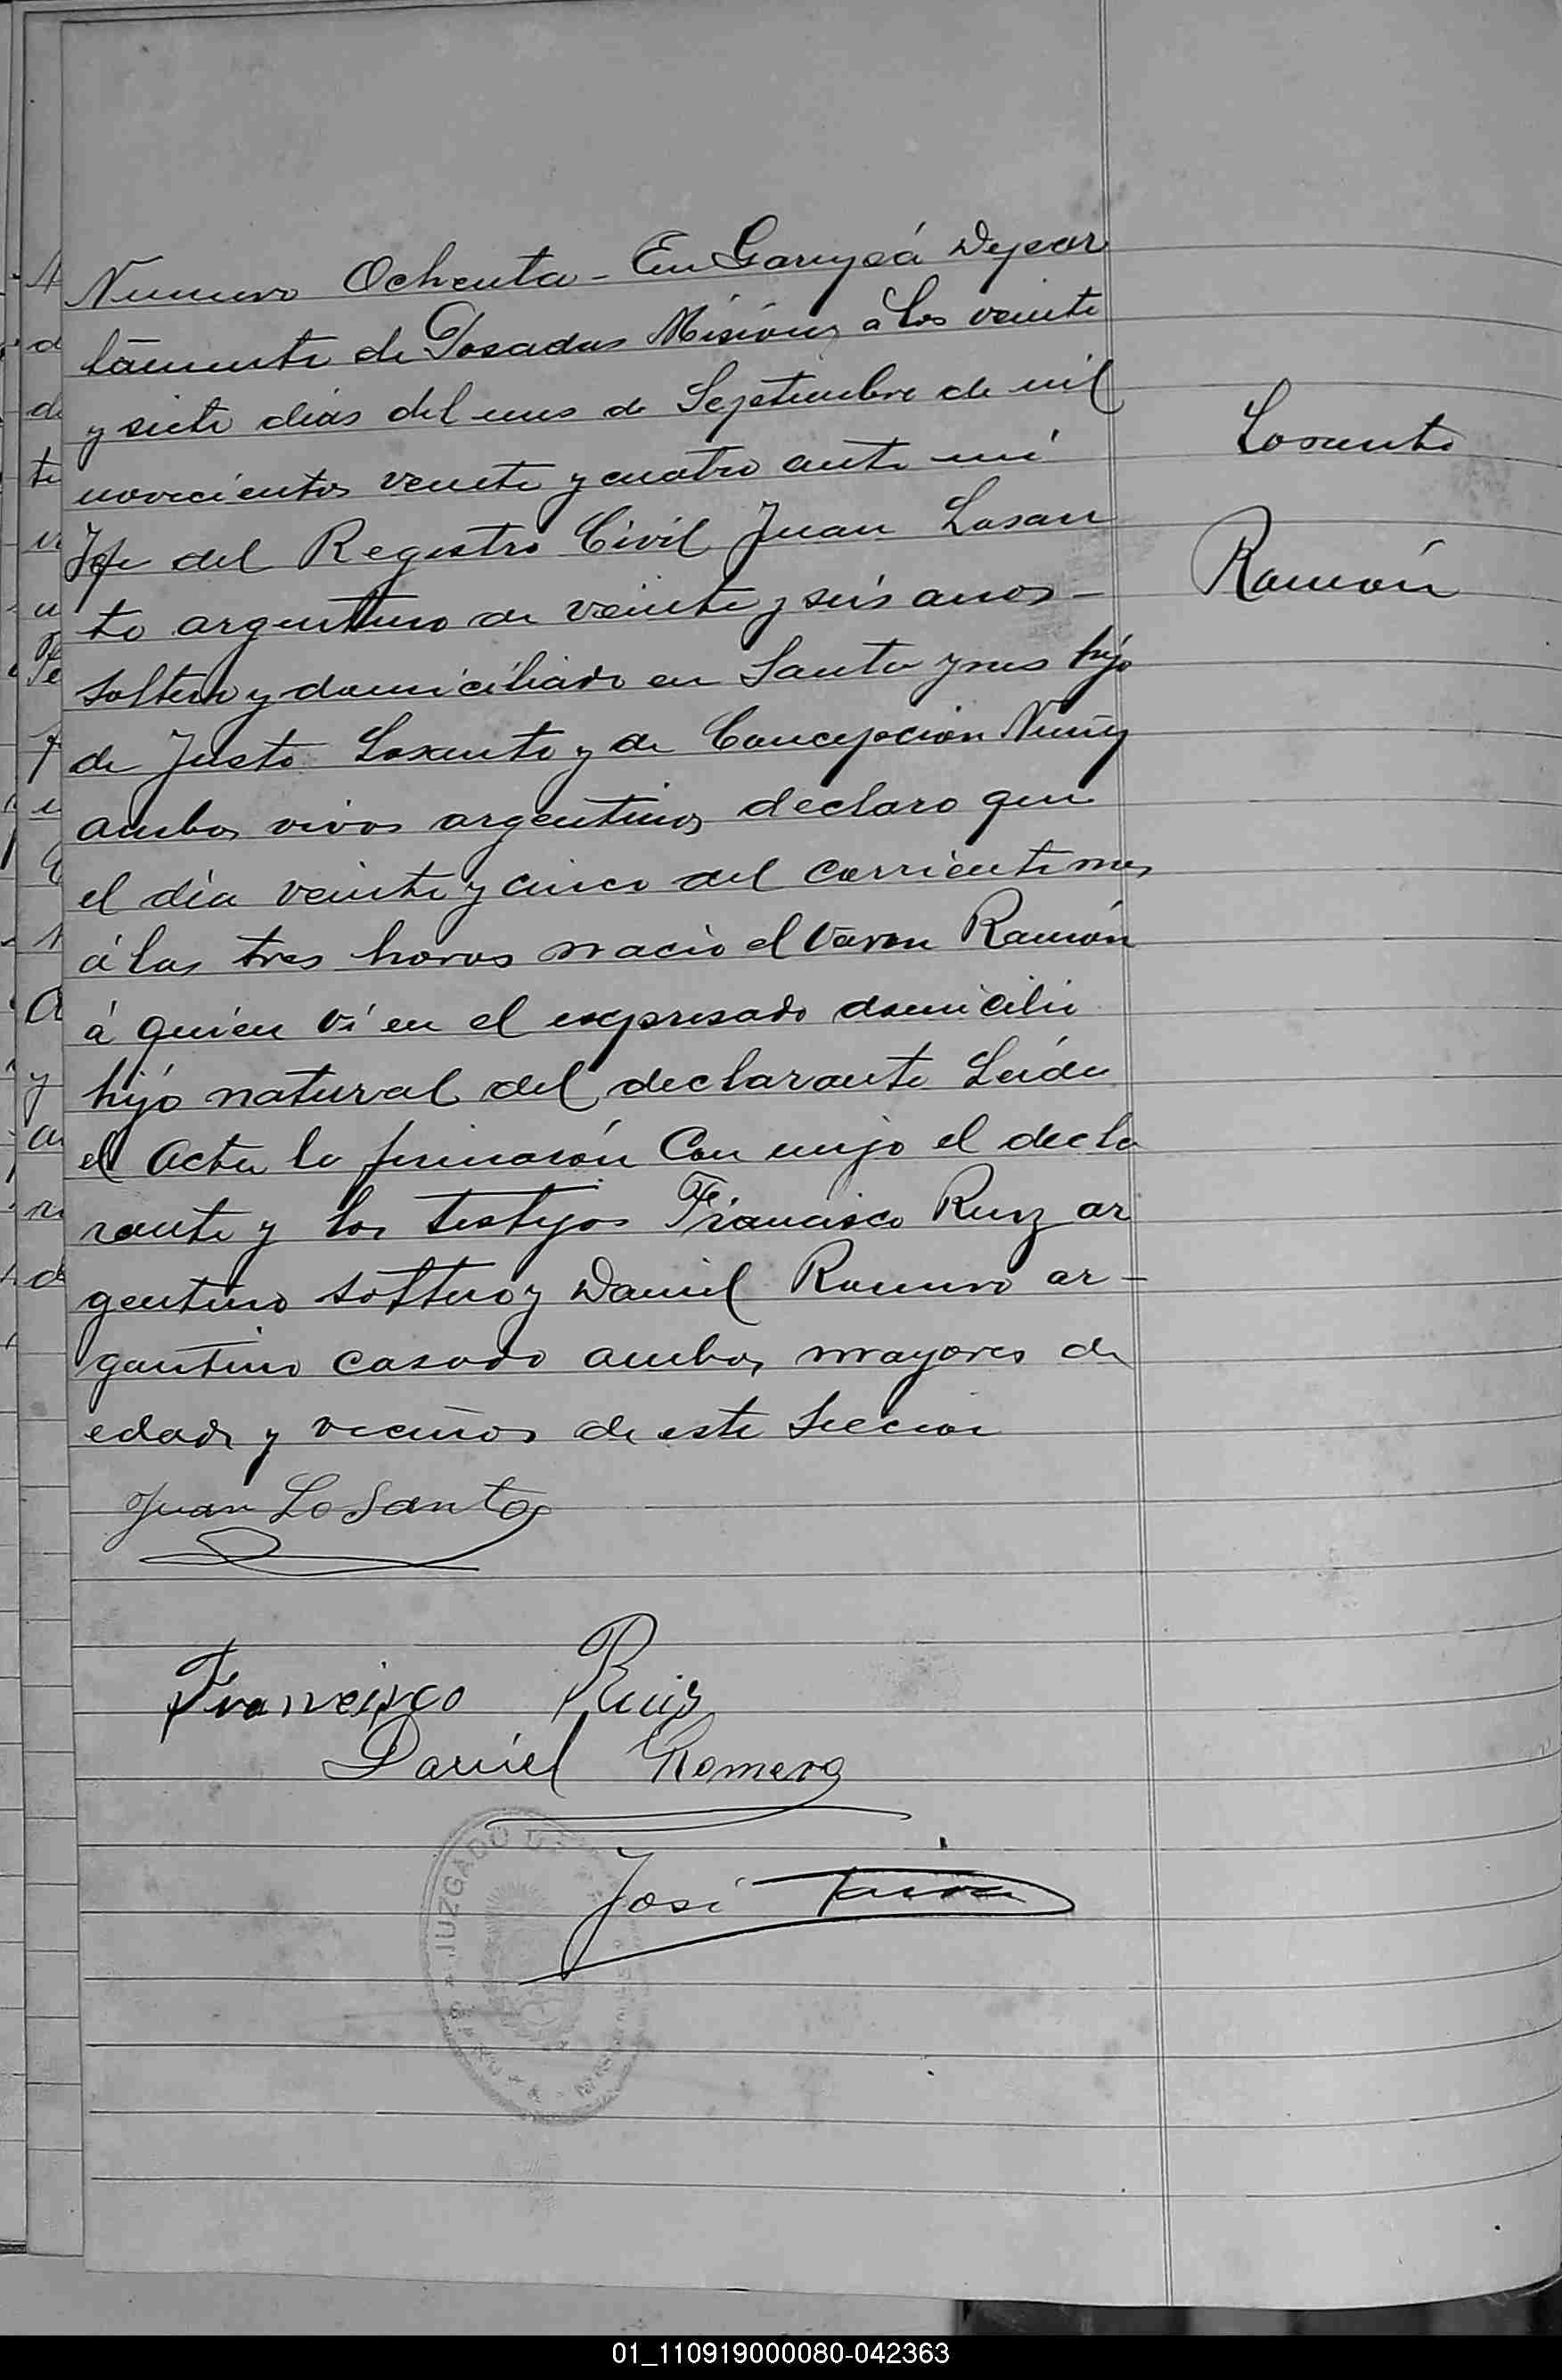 Numero Ochenta - En Garupá Depar
tamento de Posadas Misiones á los veinte
y siete dias del mes de Septiembre de mil
novecientos veinte y cuatro ante mi
Jefe del Registro Civil Juan Losan
to argentino de veinte y seis anos -
soltero y domiciliado en Santa ynes hijo
de Justo Losanto y de Concepción Nuñez
ambos vivos argentinos declaro que
el día veinte y cinco del corriente mes
á las tres horas nacio el varon Ramón
á quien ví en el expresado domicilio
hijo natural del declarante Leida
el Acta la firmarón Con migo el decla
rante y los testigos Francisco Ruiz ar
gentino soltero y Daniel Romero ar-
gentino casado ambos mayores de
edad y vecinos de este Seccion
Juan Losanto
Francisco Ruiz
Daniel Romero
José
JUZGADO
Losanto
Ramón
01_110919000080-042363